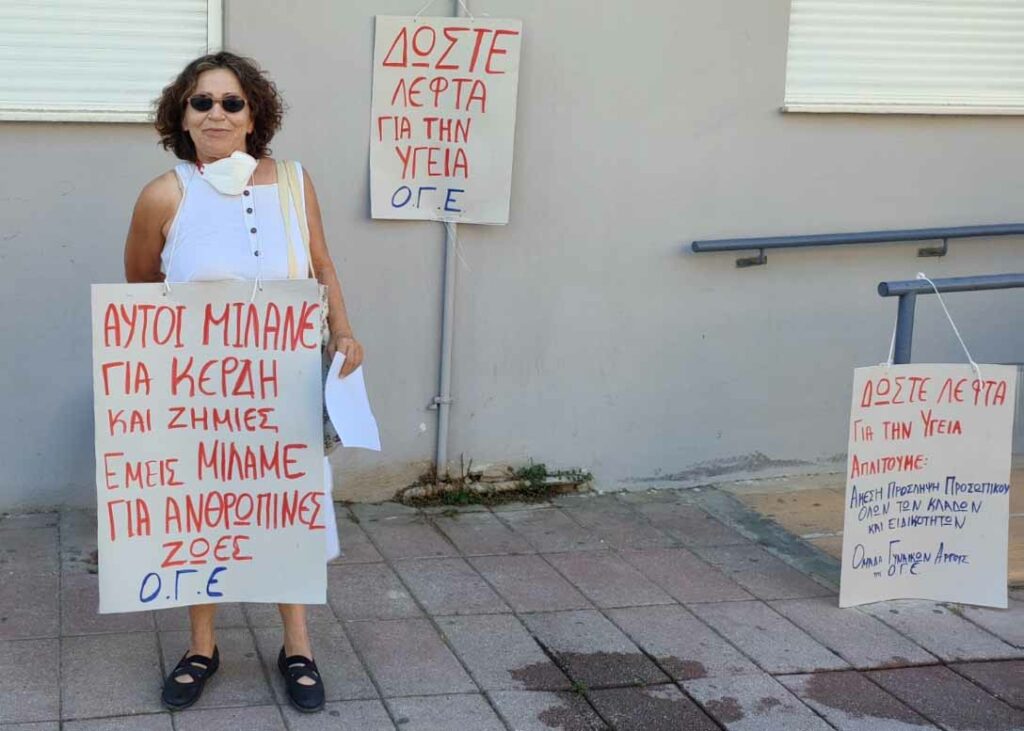 ΑΥΤΟΙ ΜΙΛΑΝΕ
ΓΙΑ ΚΕΡΔΗ
ΚΑΙ ΖΗΜΙΕΣ
ΕΜΕΙΣ ΜΙΛΑΜΕ
ΓΙΑ ΑΝΘΡΩΠΙΝΕΣ
ΖΩΕΣ
Ο.Γ.Ε
ΔΩΣΤΕ
ΛΕΦΤΑ
ΓΙΑ ΤΗΝ
ΥΓΕΙΑ
Ο.Γ.Ε.
ΔΩΣΤΕ ΛΕΦΤΑ
ΓΙΑ ΤΗΝ ΥΓΕΙΑ
ΑΠΑΙΤΟΥΜΕ:
ΑΜΕΣΗ ΠΡΟΣΛΗΨΗ ΠΡΟΣΩΠΙΚΟΥ
ΟΛΩΝ ΤΩΝ ΚΛΑΔΩΝ
ΚΑΙ ΕΙΔΙΚΟΤΗΤΩΝ
ΟΜΑΔΑ ΓΥΝΑΙΚΩΝ ΑΡΓΟΥΣ
της Ο.Γ.Ε